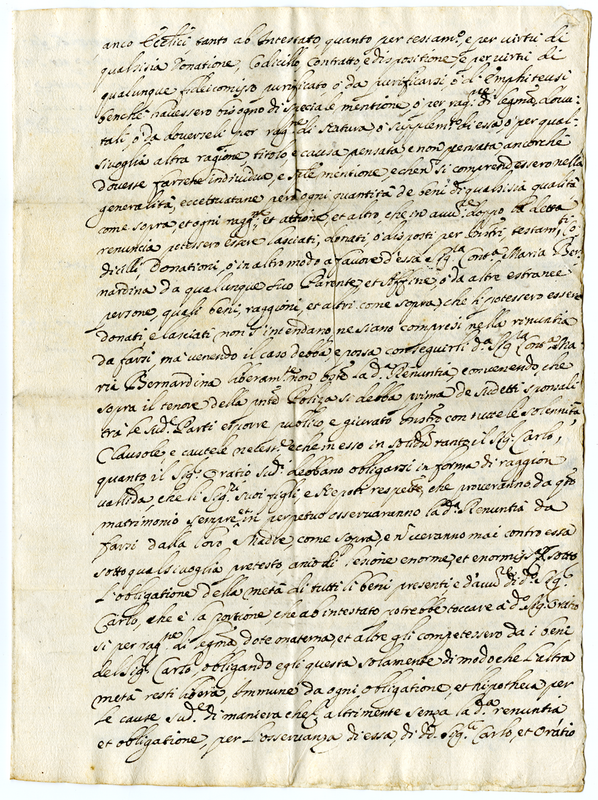 anco Ecclici tanto ab Intestato, quanto per testamto, e per virtù di
qualsisia Donatione, Codicillo Contratto, e dispositione e per virtù di
qualunque fideicomisso purificato ò da purificarsi, ò d'Emphiteusi
benche havessero bisogno di speciale mentione ò per ragne di legma, dou
tali, ò da doverseli per ragne di statura ò supplemto di essa ò per qual-
sivoglia altra ragione, titolo, e causa pensata, e non pensata ancorche
dovesse farsene individua, e sple mentione, e che nò si comprendessero nella
generalità, eccettuatane però ogni quantità de beni di qualsisia qualità
come sopra, et ogni ragne et attione, et altro, che in avvre doppo la detta
renuncia potessero essere lasciati, donati ò disposti per testamti Co-
dicilli, Donationi, ò in altro modo à favore d'essa Sigra Conta Maria Ber-
nardina da qualunque suo Parente, et Affine ò da altre estranee
persone, quali beni, raggioni, et altri come sopra, che li potessero essere
donati e lasciati, non s'intendano ne siano compresi nella rinuntia
da farsi ma venendo il caso debba e possa conseguirli da Sigra Conta Ma
ria Bernardina liberamte non ostte la da Renuntia convenendo che
sopra il tenore della pnte Poliza si debba prima de sudetti sponsali
trà le sude Parti essere publico, e giurato con tutte le solennità,
Clausole, e cautele necessre e che in esso in solidum tanto il Sigr Carlo,
quanto il Sigr Oratio sudi debbano obligarsi in forma di raggion
vallida che li Sigri suoi figli e Nepoti respectte, che proveranno da qsto
matrimonio sempre, et in perpetuo osservaranno la da Renuntia da
farsi dalla loro Madre, come sopra, e nò veranno mai contro essa
sotto qualsivoglia pretesto anco di lesione enorme, et enormissa sotto
l'obligatione della metà di tutti li beni presenti e d'avvre di do Sigr
Carlo, che è la portione che ab intestato potrebbe toccare à do Sigr Oratio
si per ragne di legma, dote materna, et altre gli competessero da i beni
del Sigr Carlo, obligando egli questa solamente di modo che l'altra
metà resti libera, Immune da ogni obligatione, et hipotheca per
le cause sude di maniera che altrimente senza la da renuntia
et obligatione, per l'osservanza di essa, di di Sigri Carlo, et Oratio